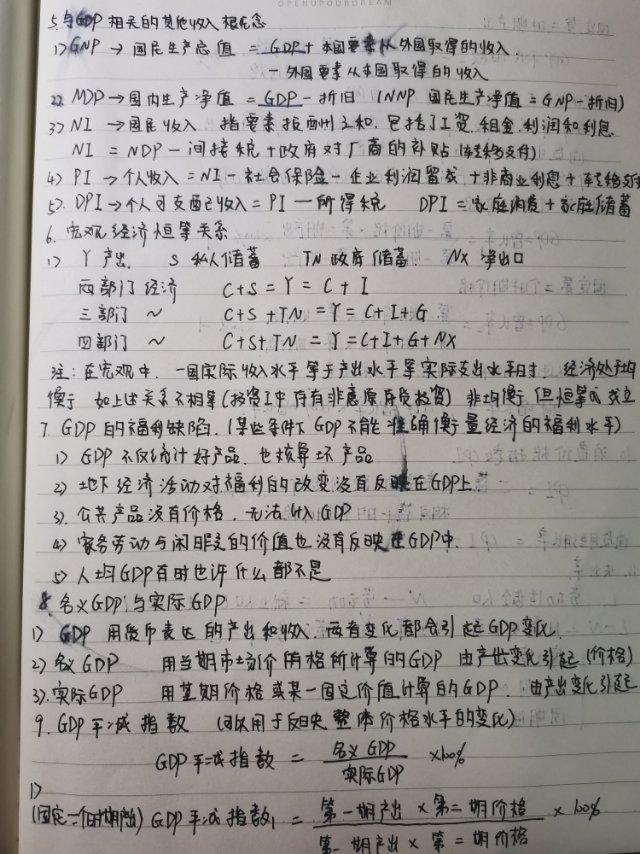 OPENUPOURDREAM
5. 与GDP相关的其他收入概念
1) GNP → 国民生产总值 = GDP + 本国要素从外国取得的收入.
- 外国要素从本国取得的收入
2). NDP → 国内生产净值 = GDP - 折旧 (NNP 国民生产净值 = GNP - 折旧)
3) NI → 国民收入 指要素报酬之和. 包括了工资. 租金. 利润和利息
NI = NDP - 间接税 + 政府对厂商的补贴 (转移支付)
4) PI → 个人收入 = NI - 社会保险 - 企业利润留成 + 非商业利息 + 转移支付
5). DPI → 个人可支配收入 = PI - 所得税 DPI = 家庭消费 + 家庭储蓄
6. 宏观经济恒等关系
1) Y 产出. S 私人储蓄 TN 政府储蓄. NX 净出口
两部门经济 C+S = Y = C + I
三部门 ~ C+S+TN = Y = C+I+G
四部门 ~ C+S+TN = Y = C+I+G+NX
注: 在宏观中. 一国实际收入水平等于产出水平等实际支出水平时. 经济处于均
衡于 如上述关系不相等 (投资I中存有非意愿存货投资) 非均衡 但恒等式成立
7. GDP的福利缺陷. (某些条件下GDP不能准确衡量经济的福利水平)
1) GDP不仅统计好产品. 也核算坏产品
2) 地下经济活动对福利的改变没有反映在GDP上.
3). 公共产品没有价格. 无法计入GDP
4) 家务劳动与闲暇的价值也没有反映在GDP中.
5) 人均GDP有时也许什么都不是
8. 名义GDP与实际GDP
1) GDP 用货币表达的产出和收入. 两者变化都会引起GDP变化
2) 名义GDP 用当期市场价格所计算的GDP 由产出变化引起 (价格)
3). 实际GDP 用基期价格或某一固定价值计算的GDP. 由产出变化引起
9. GDP平减指数 (可以用于反映整体价格水平的变化)
GDP平减指数 = 名义GDP / 实际GDP ×100%
1)
(固定一个时期产出) GDP平减指数1 = 第一期产出 × 第二期价格 × 100%
第一期产出 × 第二期价格